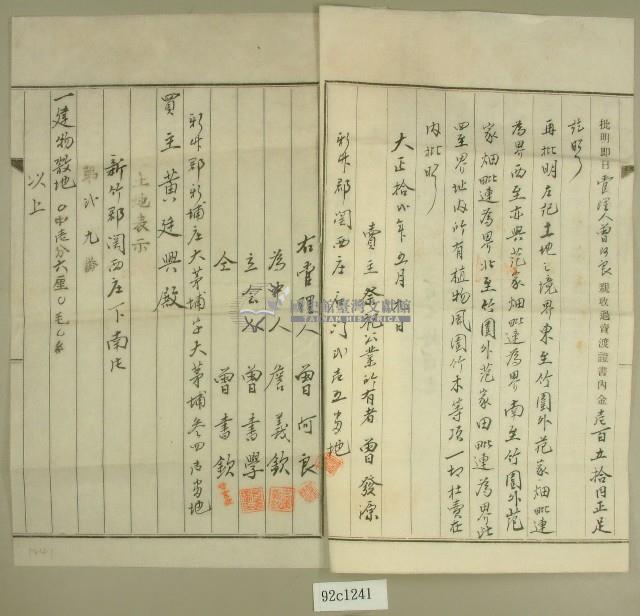 批明即日管理人曾阿良親收過賣渡證書內金壱百五拾円正足
訖照
再批明左記土地之境界東至竹圍外范家畑毗連
為界西至亦與范家畑毗連為界南至竹圍外范
家畑毗連為界北至竹圍外范家田毗連為界此
四至界址內所有植物風圍竹木等項一切杜賣在
內批照
大正拾弍年五月 日
賣主祭祀公業所有者曾發源
新竹郡関西庄 弍五番地
右管理人曾阿良
為中人詹義欽
立会人曾書學
仝 曾書欽
新竹郡新埔庄大茅埔字大茅埔叁四 番地
買主黃廷興殿
土地表示
新竹郡関西庄下南片
第弍九番
一建物敷地 〇甲 分六厘〇毛
以上
國史館臺灣文獻館
TAIWAN HISTORICA
1241
92c1241